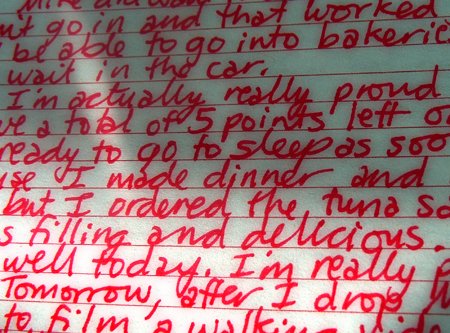 go in and that worked
be able to go into bakerie
wait in the car.
I'm actually really proud
ve a total of 5 points left o
ready to go to sleep as soo
se I made dinner and
but I ordered the tuna sa
s filling and delicious.
well today. I'm really p
Tomorrow, after I drop
to film a walking